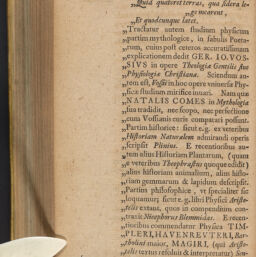 „Quid quatoret terras, qua sidera le-
„gem carent,
„Et quodcunque latet.
„Tractatur autem studium physicum
„partim mythologice, in fabulis Poeta-
rum, cuius post ceteros accuratissimam
„explicationem dedit GER. IO. VOS-
SIVS in opere Theologia Gentilis sive
Physiologia Christiana. Sciendum au-
tem est, Vossii in hoc opere vniversæ Phy-
sicæ studium mirifice iuvari. Nam quæ
NATALIS COMES in Mythologia
sua tradidit, nec scopo, nec perfectione
cum Vossianis curis comparari possunt.
Partim historice: sicut e. g. ex veteribus
Historiam Naturalem admirandi operis
scripsit Plinius. E recentioribus au-
tem alius Historiam Plantarum, (quam
e veteribus Theophrastus quoque edidit)
alius historiam animalium, alius histo-
riam gemmarum & lapidum descripsit.
Partim philosophice, vt specialiter sic
loquamur, sicut e. g. libri Physici Aristo-
telis extant, quos in compendium con-
traxit Nicephorus Blemmidas. E recen-
tioribus commendatur Physica TIM-
PLERI, HAVENREVTERI, Bar-
tholini maior, MAGIRI, (qui Aristo-
telis textus resoluit & interpretatur)